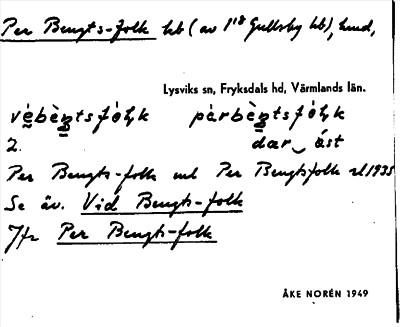 Per Bengts-folk hb (av 1/8 Gullsby hb), hmd,
Lysviks sn, Fryksdals hd, Värmlands län.
vèbèŋtsfòḷk pèrbèŋtsfòḷk
2. dar åst
Per Bengts-folk enl Per Bengtsfolk rl 1935
Se äv. Vid Bengts-folk
Jfr Per Bengts-folk
ÅKE NORÉN 1949